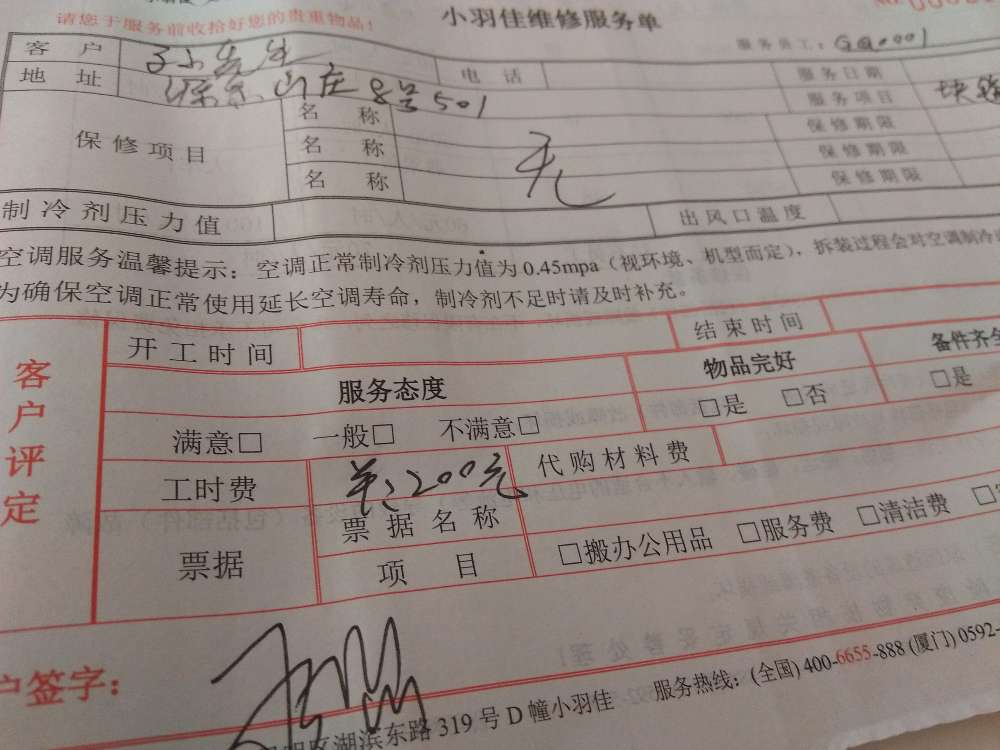 请您于服务前收拾好您的贵重物品！
小羽佳维修服务单
服务员工：GQ0001
客 户 孙先生 电 话 服务日期
地 址 山庄8号501 服务项目
保修项目 名 称 无 保修期限
名 称 保修期限
名 称 保修期限
制冷剂压力值 出风口温度
空调服务温馨提示：空调正常制冷剂压力值为0.45mpa（视环境、机型而定），拆装过程会对空调制冷
为确保空调正常使用延长空调寿命，制冷剂不足时请及时补充。
客户评定
开工时间 结束时间
服务态度 物品完好 备件齐全
满意□ 一般□ 不满意□ □是 □否 □是
工时费 单：200元 代购材料费
票据 票据名称
项 目 □搬办公用品 □服务费 □清洁费 □
户签字：
区湖浜东路319号D幢小羽佳 服务热线：(全国) 400-6655-888 (厦门) 0592-